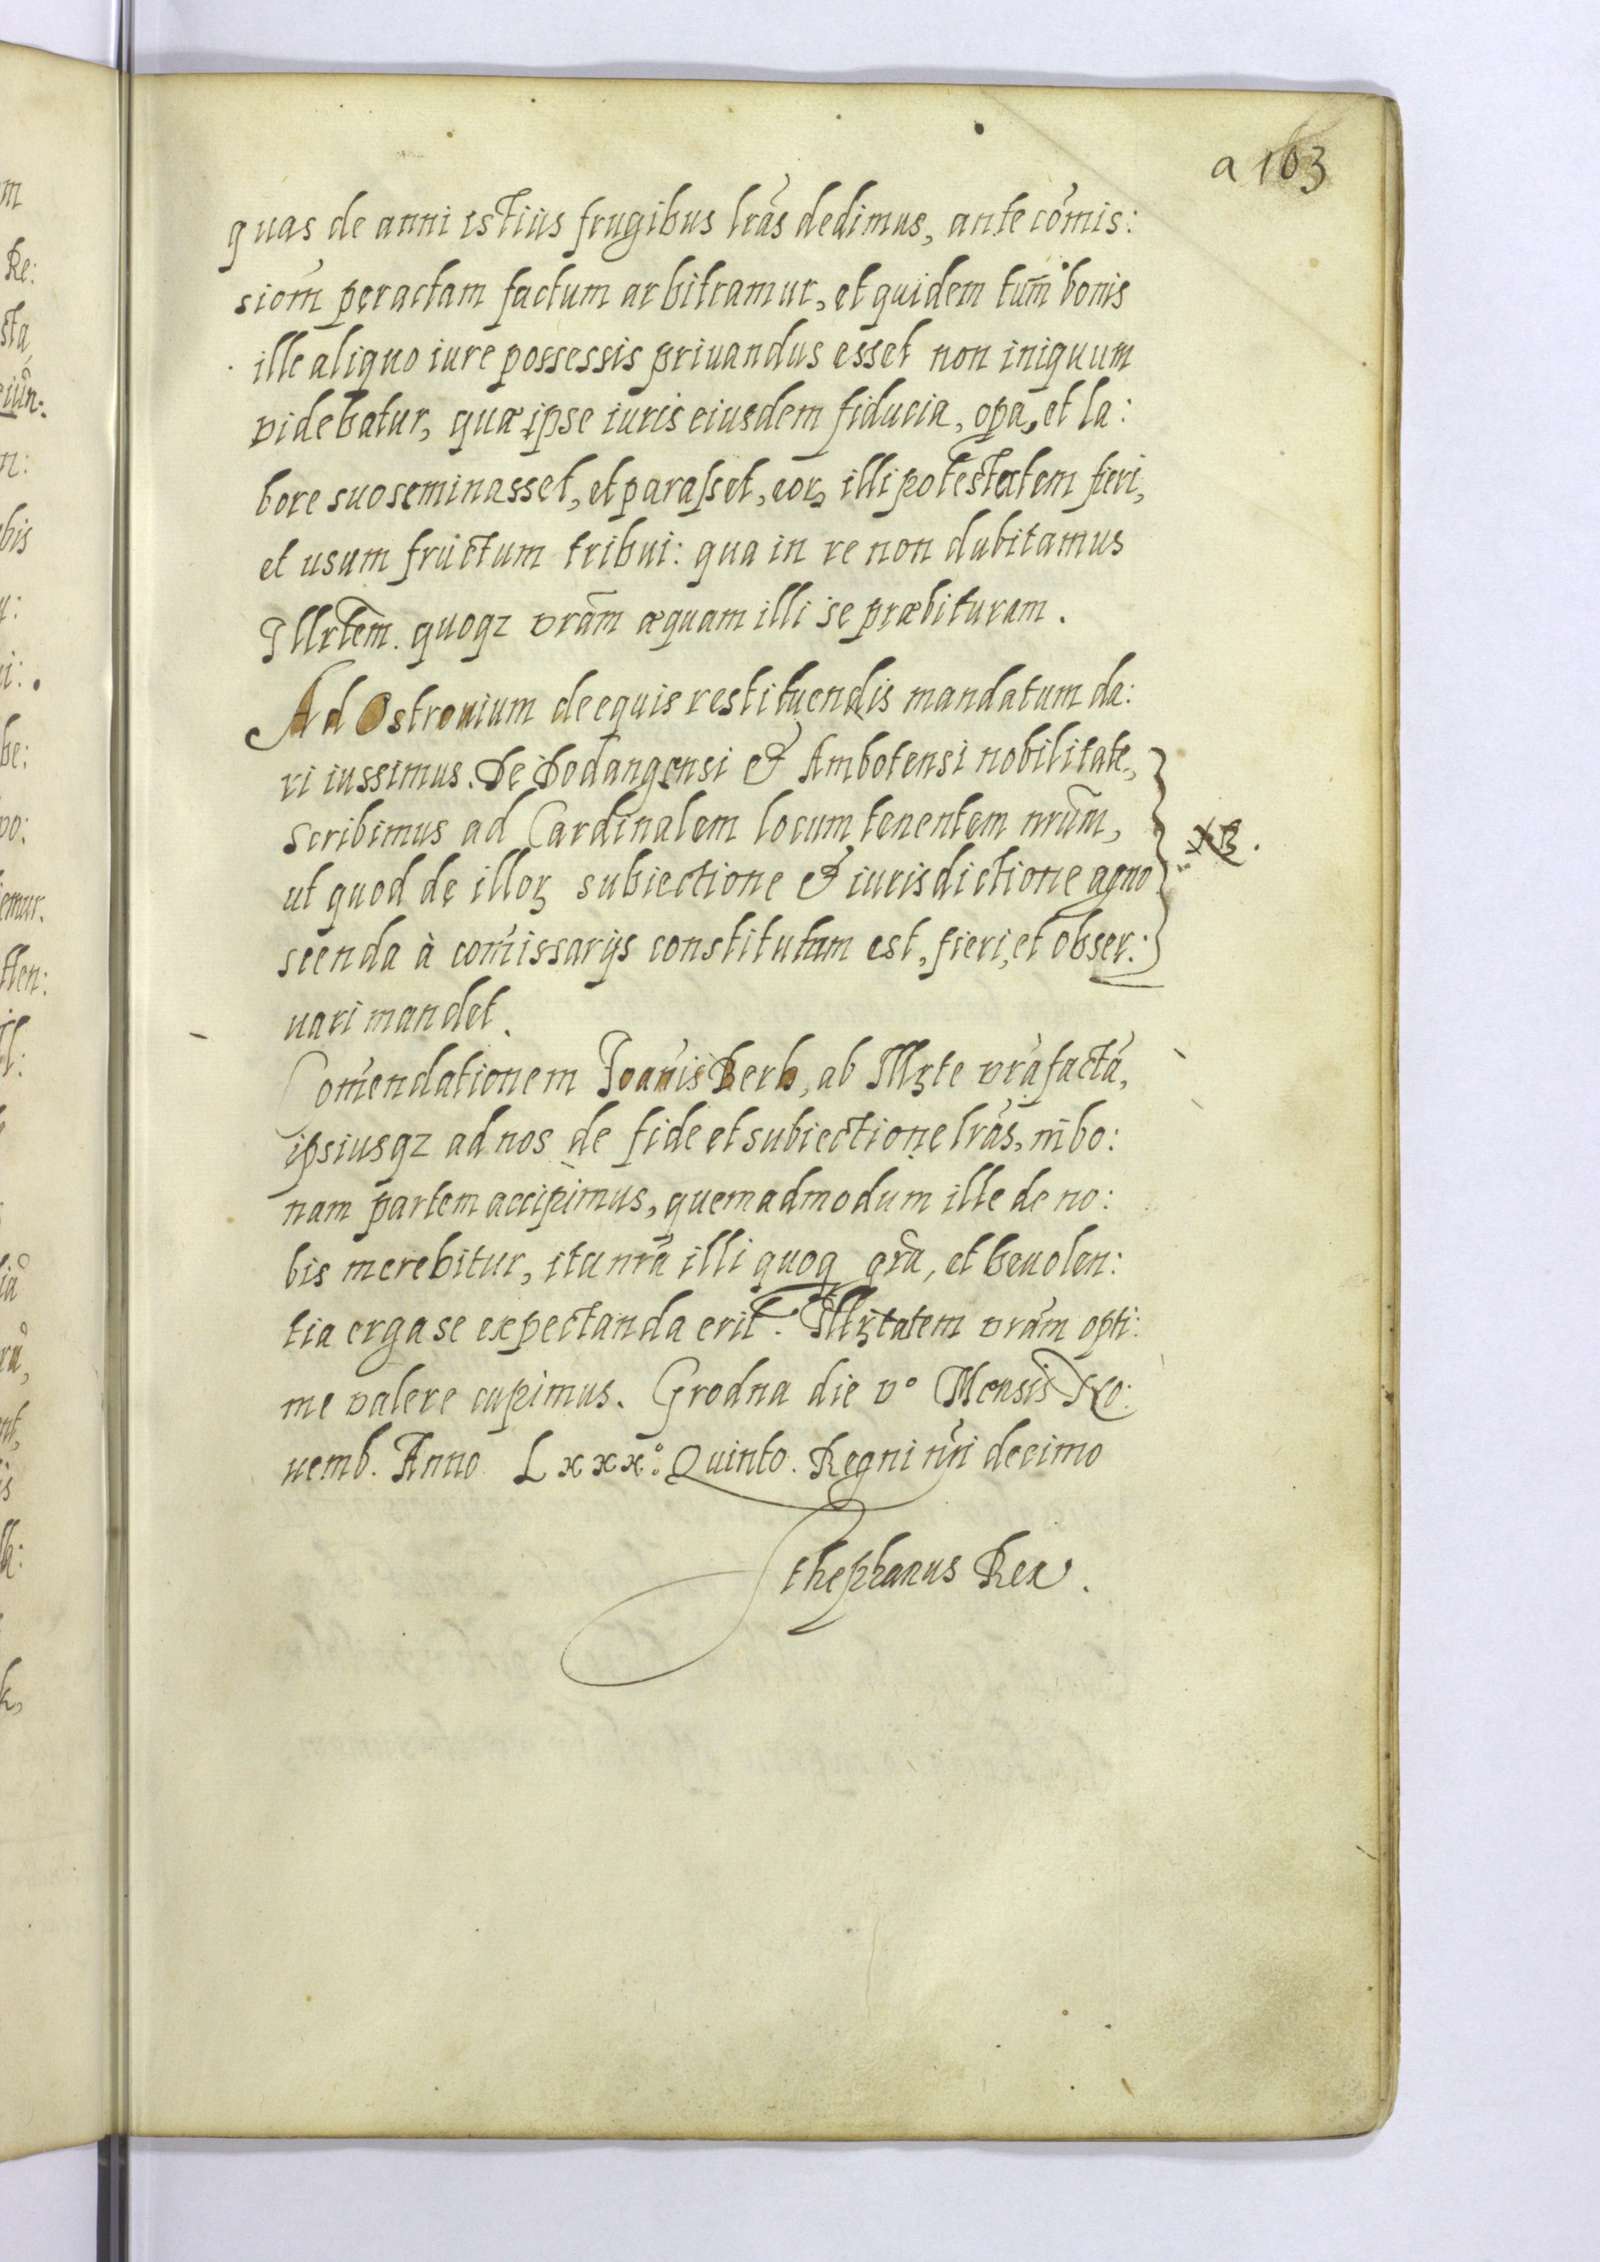 a 163
quas de anni istius frugibus lrãs dedimus, ante com̃is:
siom̃ peractam factum arbitramur, et quidem tum̃ bonis
ille aliquo iure possessis priuandus esset non iniquum
videbatur, quæ ipse iuris eiusdem fiducia, opa, et la:
bore suo seminasset, et parasset, eoꝝ illi potestatem fieri,
et usum fructum tribui: qua in re non dubitamus
Illrtem̃. quoqz vrãm æquam illi se præbituram.
Ad Ostrouium de equis restituendis mandatum da:
ri iussimus. De Dodangensi & Ambotensi nobilitate,
scribimus ad Cardinalem locum tenentem nrũm,
ut quod de illoꝝ subiectione & iurisdictione agno
scenda à com̃issarijs constitutum est, fieri, et obser:
NB.
uari mandet.
Com̃endationem Ioañis Berb, ab Illꝛte vrã factã,
ipsiusqz ad nos de fide et subiectione lrãs, in bo:
nam partem accipimus, quemadmodum ille de no:
bis merebitur, ita nrã illi quoq grã, et beuolen:
tia erga se expectanda erit. Illꝛtatem vrãm opti:
me valere cupimus. Grodna die vº Mensis No:
uemb. Anno Lxxxº. Quinto. Regni nr̃i decimo
Sthephanus Rex.